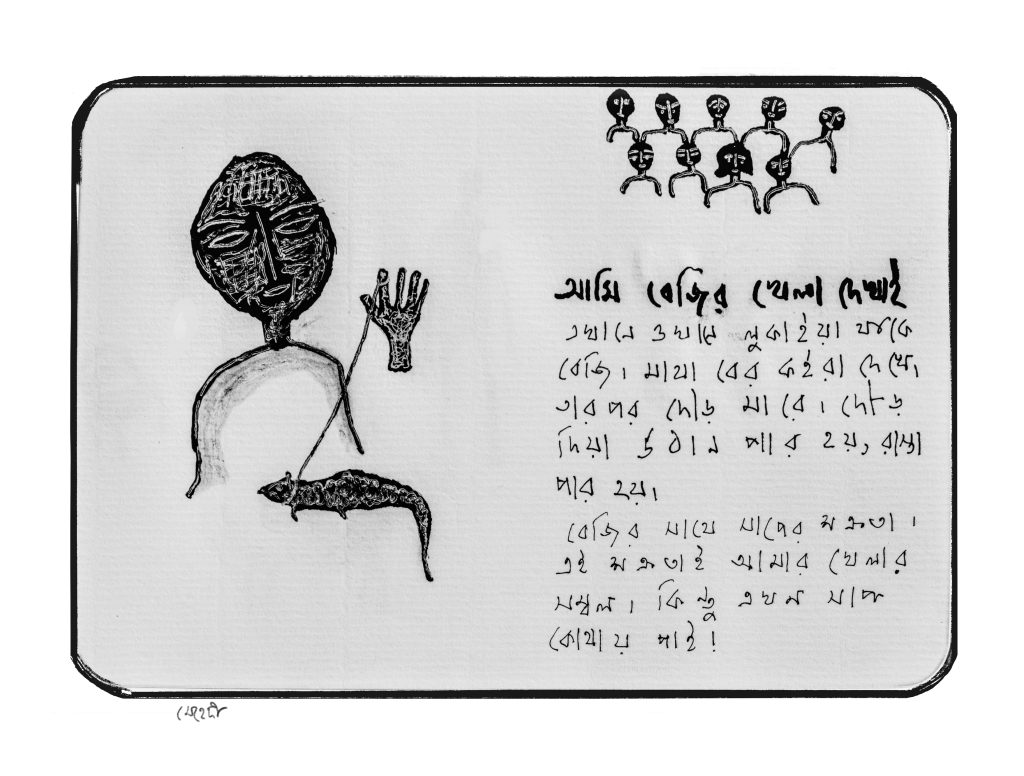 আমি বেজির খেলা দেখাই
এখানে ওখানে লুকাইয়া থাকে
বেজি। মাথা বের কইরা দেখে,
তারপর দৌড় মারে। দৌড়
দিয়া উঠান পার হয়, রাস্তা
পার হয়।
বেজির সাথে সাপের শত্রুতা।
এই শত্রুতাই আমার খেলার
সম্বল। কিন্তু এখন সাপ
কোথায় পাই!